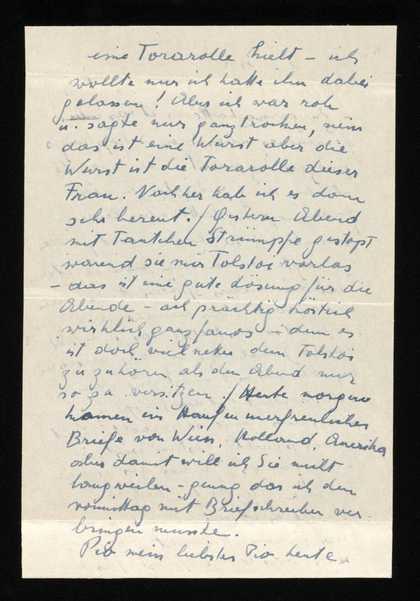 eine Torarolle hielt – ich
wollte nur ich hatte ihn dabei
gelassen! Aber ich war roh
u. sagte nur ganz trocken, nein
das ist eine Wurst aber die
Wurst ist die Torarolle dieser
Frau. Nachher hab ich es dann
sehr bereut. / Gestern Abend
mit Tantchen Strümpfe gestopft
warend sie mir Tolstoi vorlas
– das ist eine gute Losung für die
Abende – ach prächtig köstlich
wirklich ganz famos – denn es
ist doch viel netter dem Tolstoi
zu zuhören als den Abend nur
so zu versitzen / Heute morgen
kamen ein Haufen unerfreulicher
Briefe von Wien, Holland, Amerika
aber damit will ich Sie nicht
langweilen – genug das ich den
vormittag mit Briefschreiben ver-
bringen musste.
Pio mein liebster Pio heute